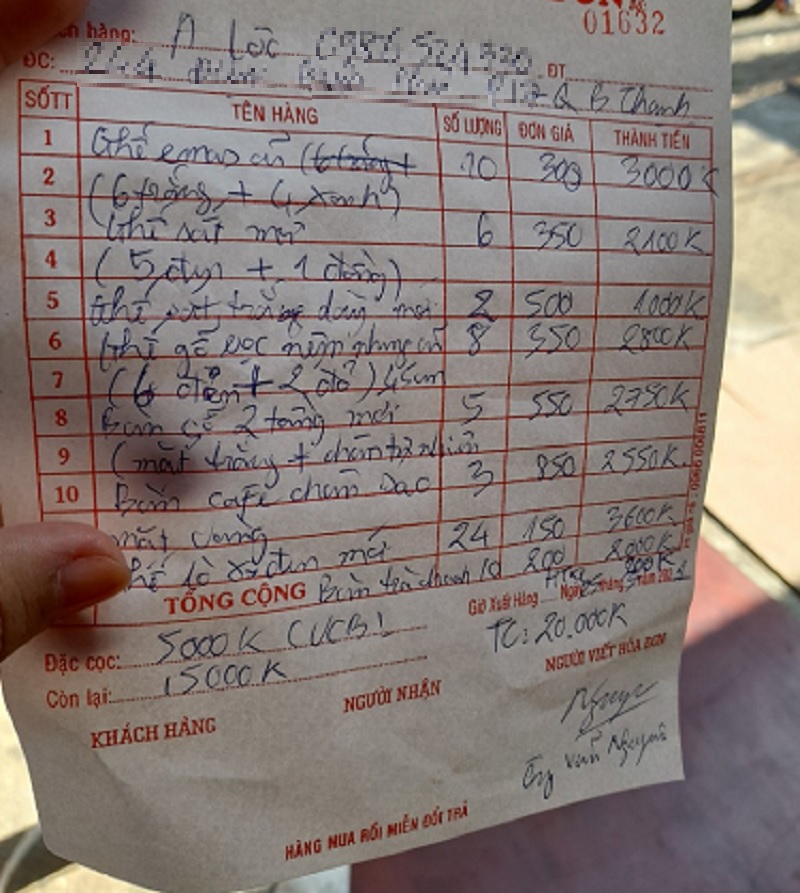 01632
hàng: A Lộc 0986 524 920 ĐT
ĐC: 244 P17 Q B Thạnh
SỐTT TÊN HÀNG SỐ LƯỢNG ĐƠN GIÁ THÀNH TIỀN
1 Ghế emas cũ (6 trắng + 10 300 3000K
2 (6 trắng + 4 xanh)
3 Ghế sắt mới 6 350 2100K
4 (5 đen + 1 đồng)
5 Ghế sắt trắng dày mới 2 500 1000K
6 Ghế gỗ bọc nệm nhung cũ 8 350 2800K
7 (6 đen + 2 đỏ) 45cm
8 Bàn gỗ 2 tầng mới 5 550 2750K
9 (mặt trắng + chân tự nhiên
10 Bàn cafe chân sao 3 850 2550K
mặt vuông
24 150 3600K
đen mới
TỔNG CỘNG Bàn trà chanh 10 200 2000K
Giờ Xuất Hàng Ngày tháng năm 202
200K
TC: 20.000K
Đặc cọc: 5000K (VCB)
Còn lại: 15000K
KHÁCH HÀNG NGƯỜI NHẬN NGƯỜI VIẾT HÓA ĐƠN
Nguyê
Văn Nguyên
HÀNG MUA RỒI MIỄN ĐỔI TRẢ